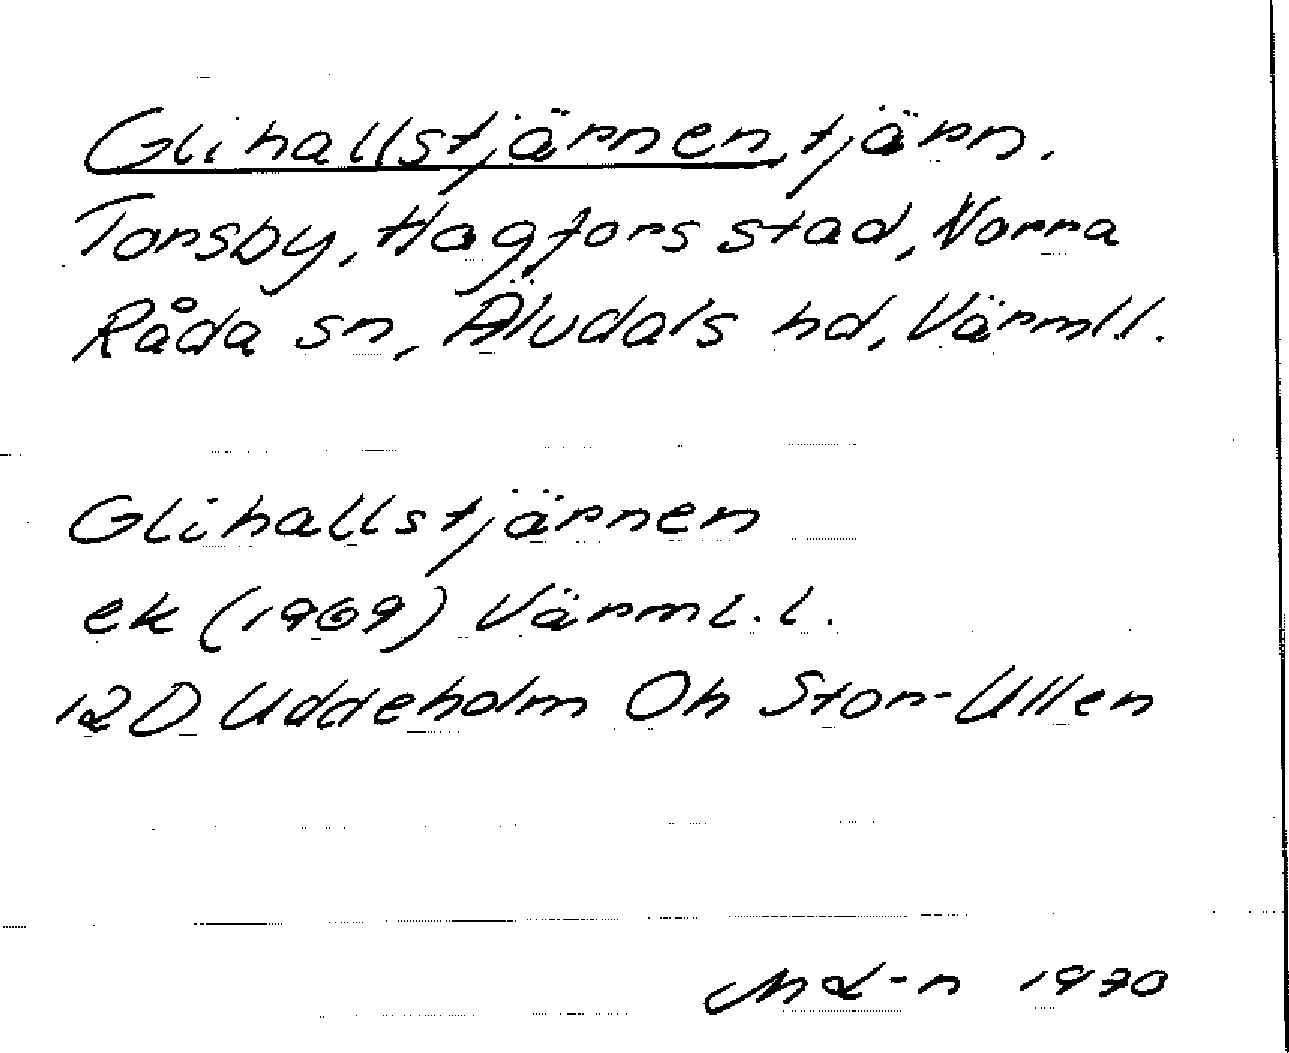 Glihallstjärnen, tjärn.
Torsby, Hagfors stad, Norra
Råda sn, Älvdals hd, Värml.l.
Glihallstjärnen
ek (1969) Värml.l.
12D Uddeholm Oh Stor-Ullen
1970